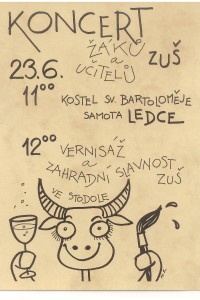 KONCERT
ŽÁKŮ
a
UČITELŮ ZUŠ
23.6.
11⁰⁰ KOSTEL SV. BARTOLOMĚJE
SAMOTA LEDCE
12⁰⁰ VERNISÁŽ
a
ZAHRADNÍ SLAVNOST
ZUŠ
VE STODOLE